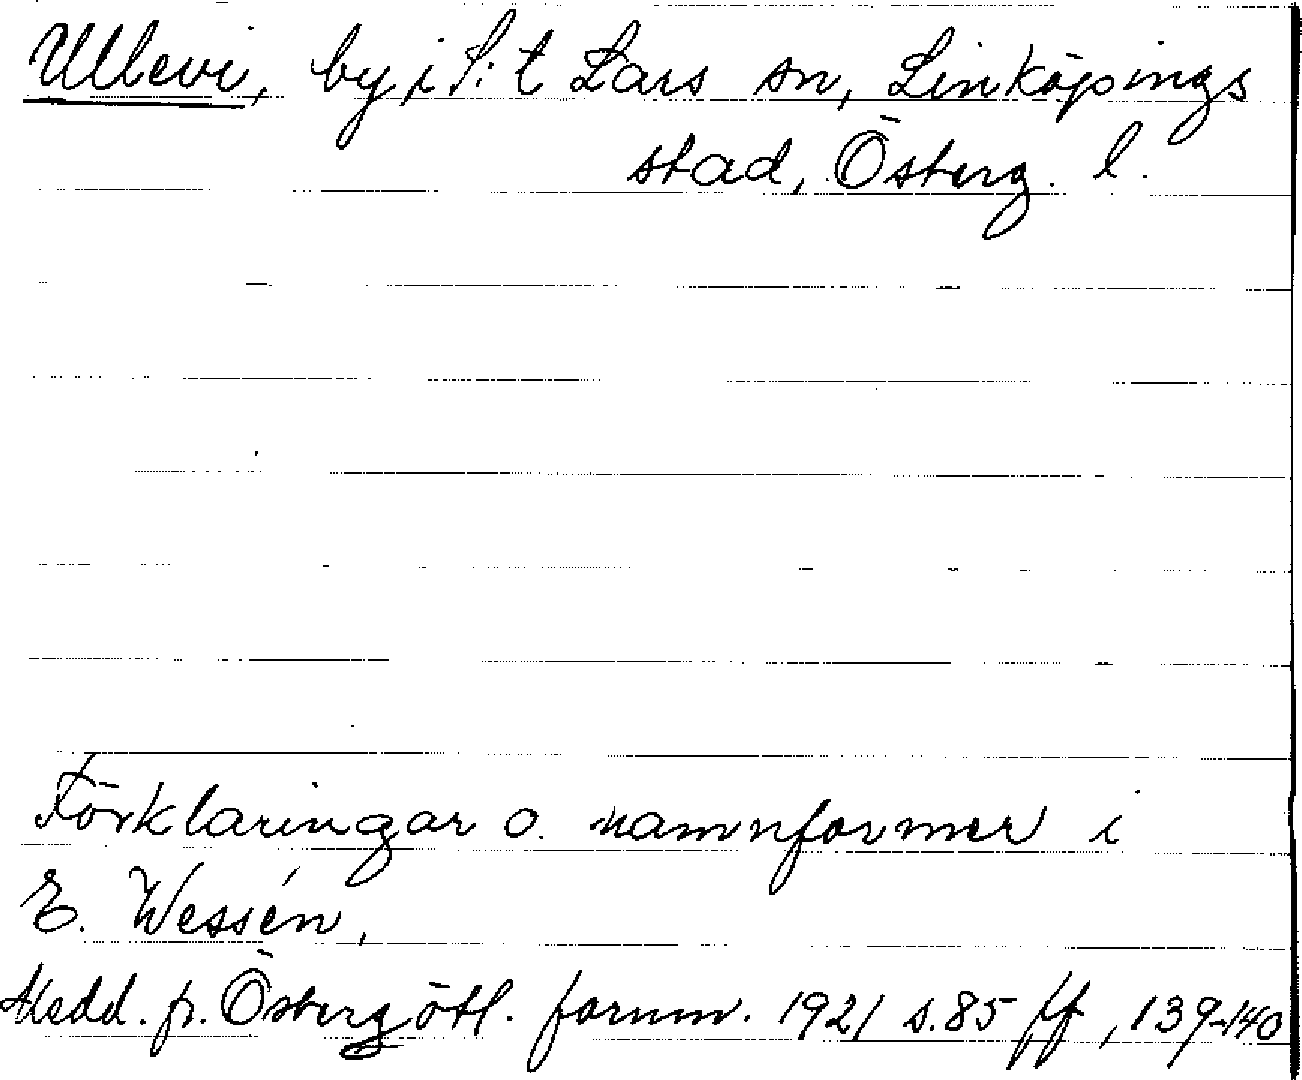 Ullevi, by i S:t Lars sn, Linköpings
stad, Österg. l.
Förklaringar o. namnformer i
E. Wessén,
Medd. fr. Östergötl. fornm. 1921 s. 85 ff, 139-140